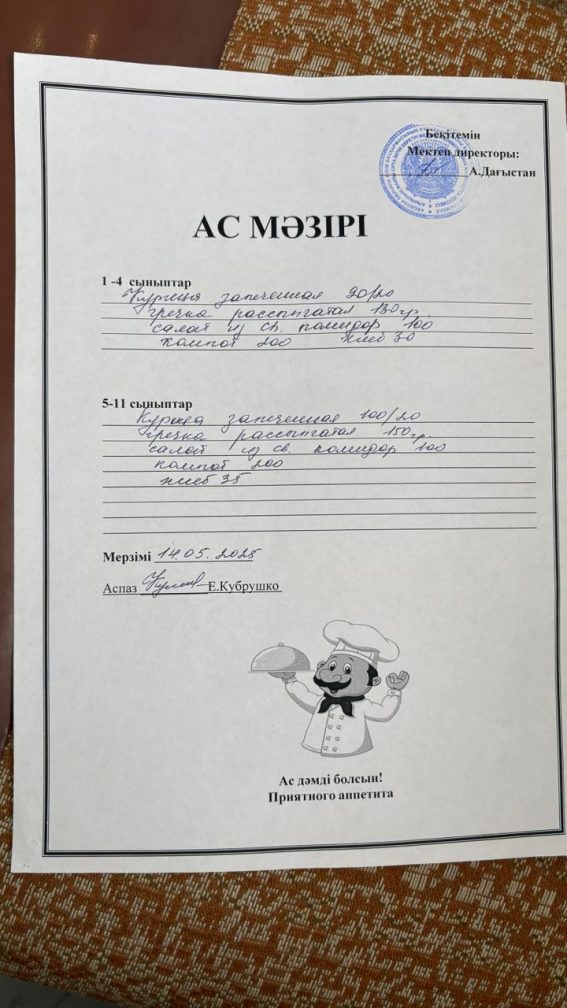 Бекітемін
Мектеп директоры:
А.Дағыстан
АС МӘЗІРІ
1 -4 сыныптар
Курица запеченная 90/20
гречка рассыпчатая 130 гр.
салат из св. помидор 100
компот 200 хлеб 30
5-11 сыныптар
Курица запеченная 100/20
гречка рассыпчатая 150 гр.
салат из св. помидор 100
компот 200
хлеб 35
Мерзімі 14.05.2025
Аспаз Е.Кубрушко
Ас дәмді болсын!
Приятного аппетита